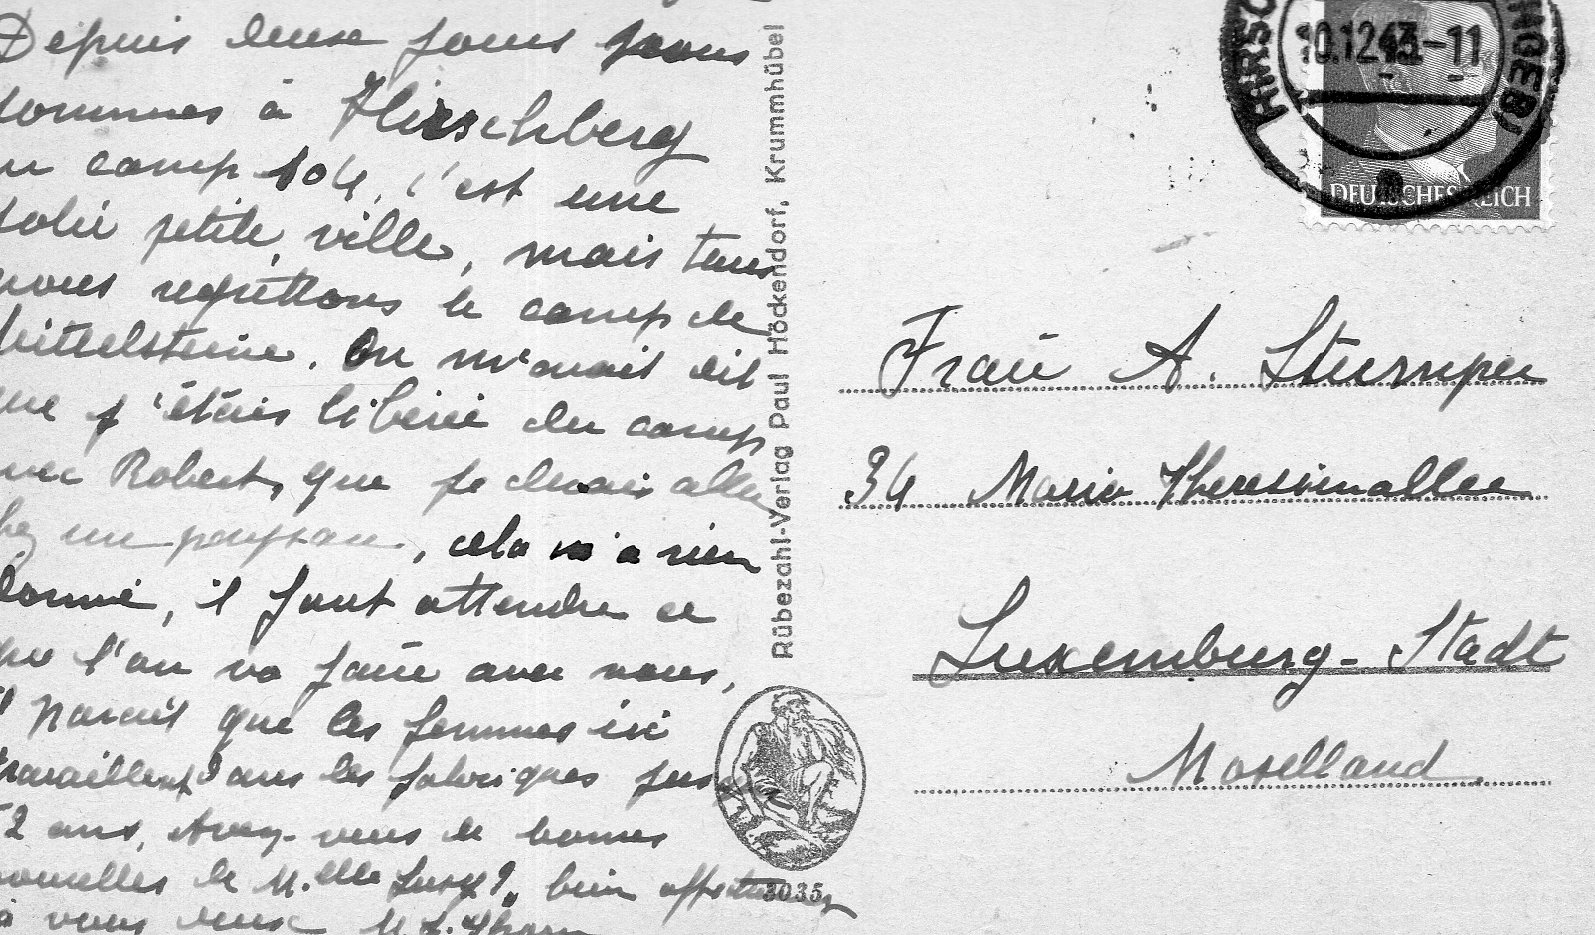 Depuis deux jours nous
sommes à Hirschberg
au camp 104, c'est une
jolie petite ville, mais tous
nous regrettons le camp de
Mittelsteine. On m'avait dit
que j'étais libérée du camp
avec Robert, que je devais aller
chez un paysan, cela n'a rien
donné, il faut attendre ce
que l'on va faire avec nous,
il parait que les femmes ici
travaillent dans les fabriques jus
72 ans, Avez-vous de bonnes
nouvelles de M.elle Lucy?, bien
à vous deux
Rübezahl-Verlag Paul Höckendorf, Krummhübel
3035
HIRSC
10.12.43-11
NGEB)
DEUTSCHES REICH
Frau A. Stumper
34 Maria Theresienallee
Luxemburg-Stadt
Moselland